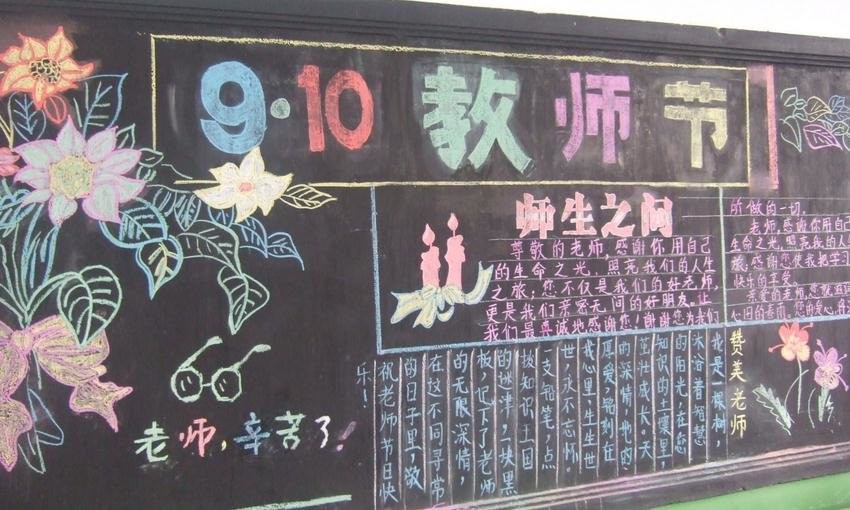 9·10 教师节
师生之间
尊敬的老师,感谢你用自己
的生命之光,照亮我们的人生
之旅;您不仅是我们的好老师,
更是我们亲密无间的好朋友。让
我们最真诚地感谢您!谢谢您为我们
所做的一切.
老师,感谢你用自己
生命之光,照亮我的人
旅,感谢您使我把学习
快乐的享受。
赞美老师
我是一棵树,
沐浴着智慧
的阳光,在您
知识的土壤里,
茁壮成长。天
的深情,地的
厚爱,铭刻在
我心里,生生世
世,永不忘怀。
一支铅笔,点
拨知识王国
的迷津,一块黑
板,记下了老师
的无限深情,
在这不同寻常
的日子里,敬
祝老师节日快
乐!
老师,辛苦了!